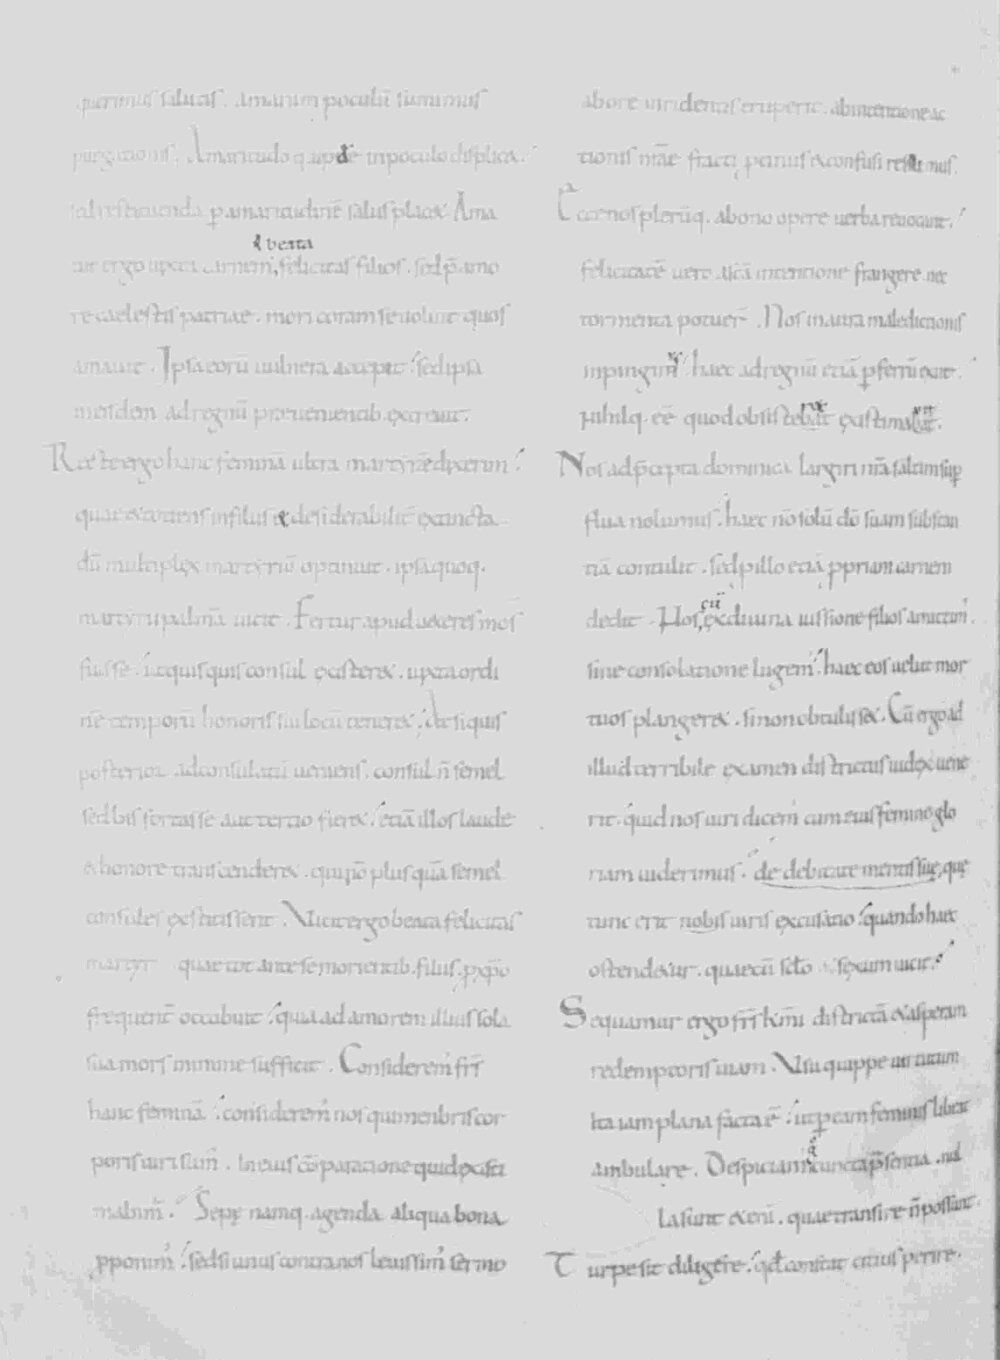 querimus salutis. amarum poculũ sumimus
purgationis. Amaritudo quippe in poculo displicet.
sed restituenda p amaritudinẽ salus placet. Ama
uit ergo uperta carnem, felicitas filios. sed p̃ amo
beata
re caelestis patriae. mori coram se uoluit quos
amauit. Ipsa eorũ uulnera accepit. sed ipsa
in eisdem ad regnũ praeuenientib. excreuit.
Recte ergo hanc feminã ultra martyrẽ dixerim.
quae totiens in filiis et desiderabilit̃ extincta.
dũ multiplex martyriũ optinuit. ipsa quoq.
martyrii palmã uicit. Fertur apud ueteres mos
fuisse. ut quisquis consul existeret. iuxta ordi
nẽ temporũ honoris sui locũ teneret. At si quis
posterior ad consulatũ ueniens. consul ñ semel
sed bis fortasse aut tertio fieret. etiã illos laude
et honore transcenderet. qui ñ plus quã semel
consules extitissent. Vicit ergo beata felicitas
martyr quae tot ante se morientib. filiis. p xp̃o
frequent̃ occubuit. quia ad amorem illius sola
sua mors minime sufficit. Considerem' fr̃s
hanc feminã. considerem' nos qui menbris cor
poris uiri sum'. In eius cõparatione quid existi
mabim'. Sepę namq. agenda aliqua bona
pponim'. sed si unus contra nos leuissim' sermo
ab ore irridentis eruperit. ab intentione ac
tionis nr̃ae fracti ptinus et confusi resilimus.
Ecce nos plerũq. a bono opere uerba reuocant.
felicitatẽ uero a scã intentione frangere nec
tormenta potuer̃. Nos in aura maledictionis
inpingim'. haec ad regnũ etiã p ferrũ exiit.
Nihilq. eẽ quod obsistebat existimabat.
Nos ad p̃cepta dominica largiri nr̃a saltim sup
flua nolumus. haec nõ solũ dõ suam substan
tiã contulit. sed p illo etiã ppriam carnem
cũ
dedit. Nos, ex diuina iussione filios amittim'.
sine consolatione lugem'. haec eos uelut mor
tuos plangeret. si non obtulisset. Cũ ergo ad
illud terribile examen districtus iudex uene
rit. quid nos uiri dicem' cum eius femine glo
riam uiderimus. de debitate mentis suę, quę
tunc erit nobis uiris excusatio. quando haec
ostendetur. quae cũ sclo et sexum uicit.
Sequamur ergo fr̃s km̃i districtã et asperam
redemptoris uiam. Vsu quippe uirtutum
ita iam plana facta ẽ. ut p eam feminis libeat
ambulare. Despiciam' cuncta p̃sentia. nul
la sunt eteni. quae transire ñ possunt.
Turpe sit diligere. qd constat citius perire.